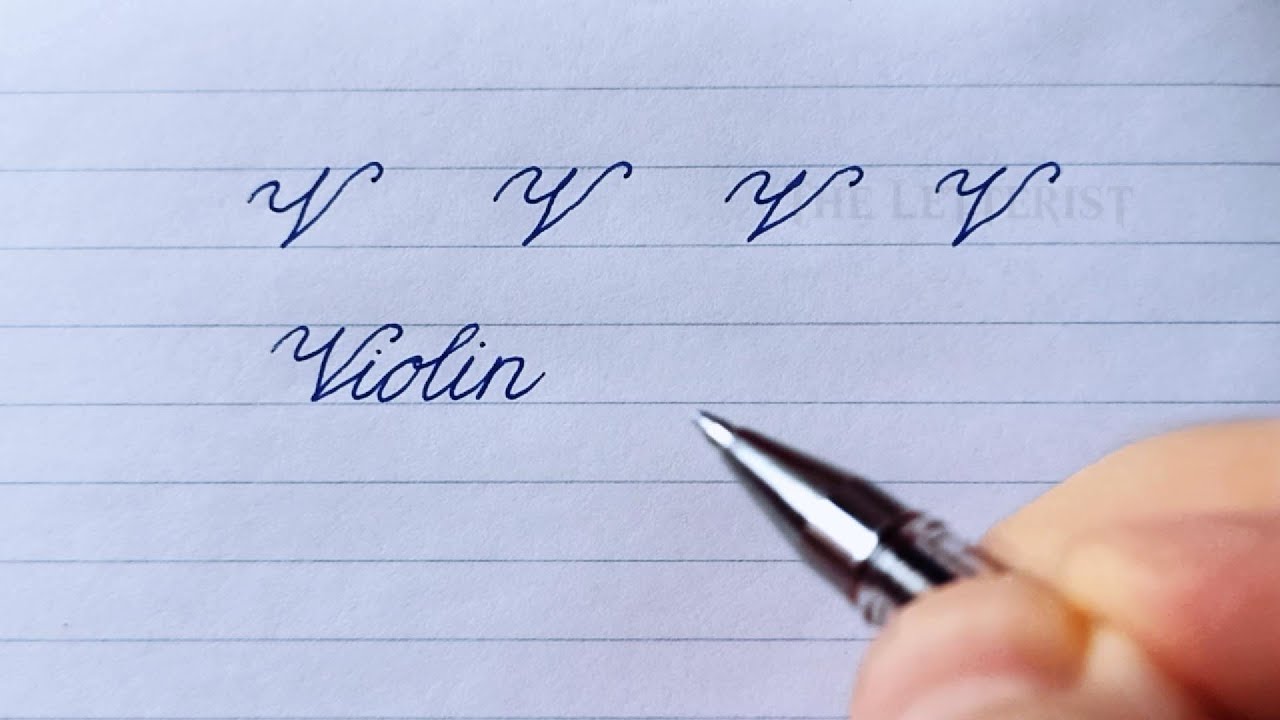 V V V V
THE LETTERIST
Violin